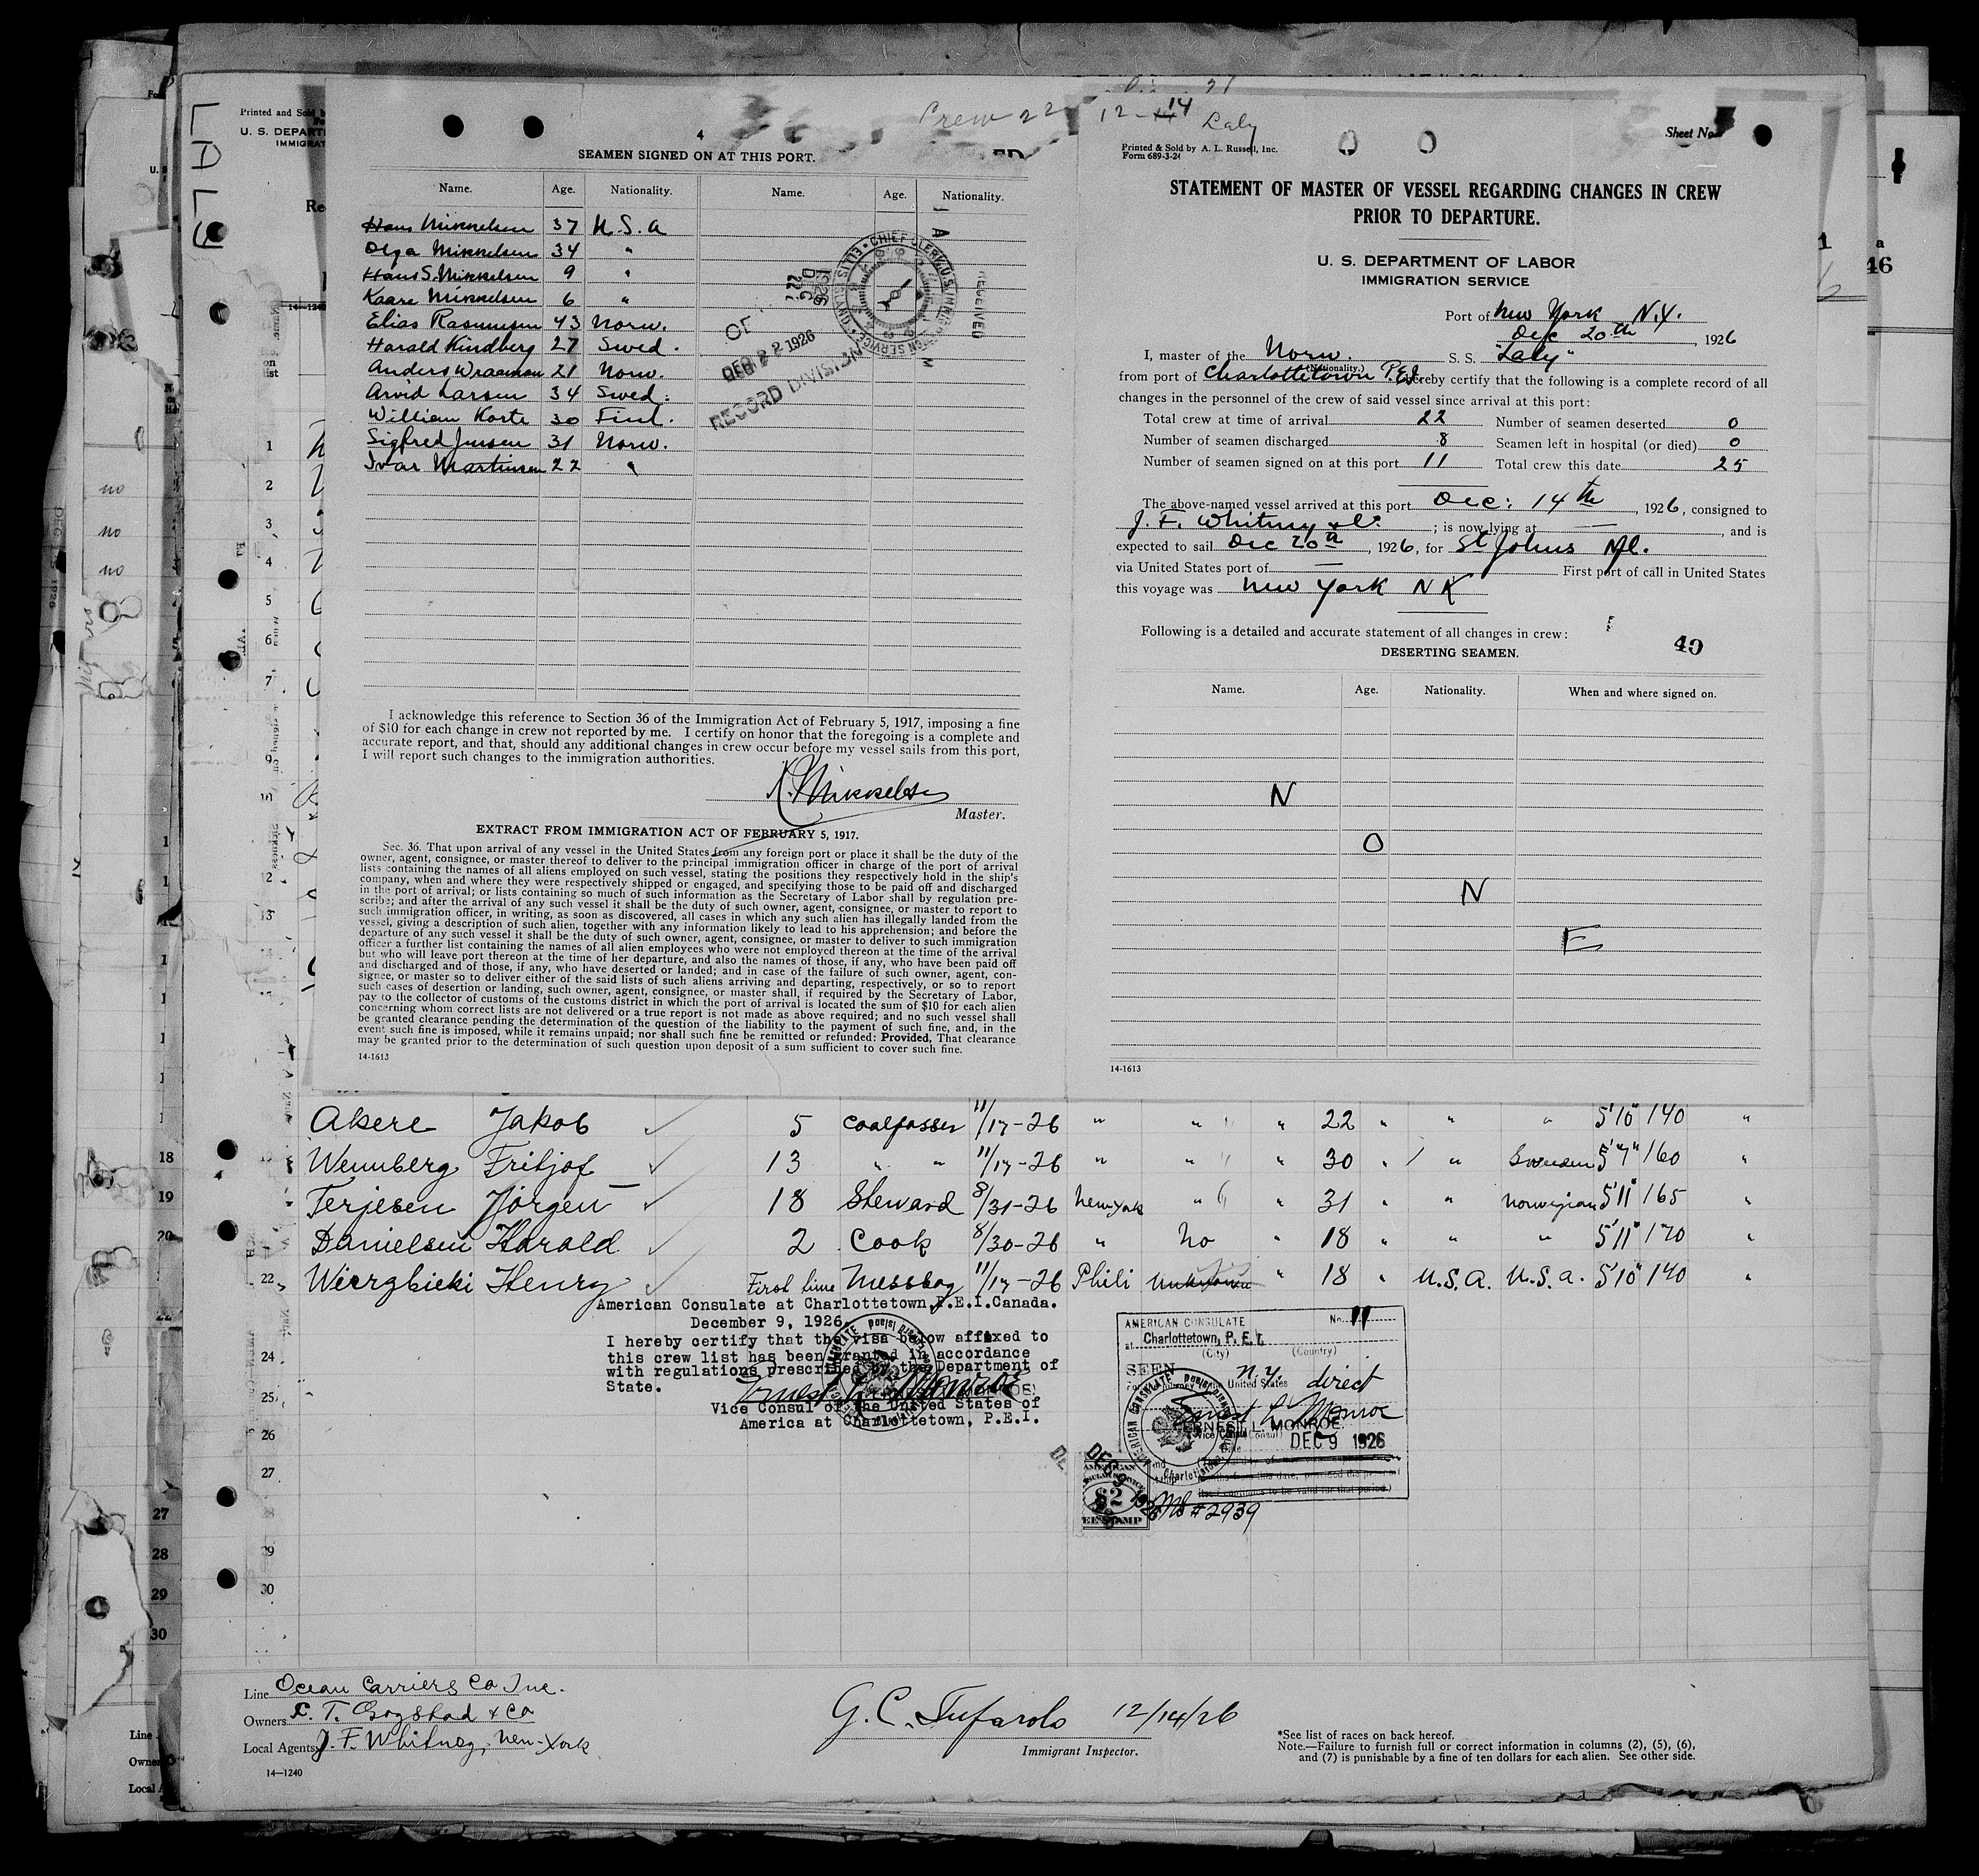 LALY
Crew 22
12-14
Laly
Printed and Sold
U. S. DEPART
IMMIGRAT
4
SEAMEN SIGNED ON AT THIS PORT.
Name. Age. Nationality. Name. Age. Nationality.
Hans Mikkelsen 37 U.S.A
Olga Mikkelsen 34 "
Hans S. Mikkelsen 9 "
Kaare Mikkelsen 6 "
Elias Rasmussen 43 Norw.
Harald Kindberg 27 Swed.
Anders Wraaman 21 Norw.
Arvid Larsen 34 Swed.
William Korte 30 Finl.
Sigfred Jensen 31 Norw.
Ivar Martinsen 22 "
RECEIVED
DEC 22 1926
RECORD DIVISION
I acknowledge this reference to Section 36 of the Immigration Act of February 5, 1917, imposing a fine
of $10 for each change in crew not reported by me. I certify on honor that the foregoing is a complete and
accurate report, and that, should any additional changes in crew occur before my vessel sails from this port,
I will report such changes to the immigration authorities.
Mikkelsen
Master.
EXTRACT FROM IMMIGRATION ACT OF FEBRUARY 5, 1917.
Sec. 36. That upon arrival of any vessel in the United States from any foreign port or place it shall be the duty of the
owner, agent, consignee, or master thereof to deliver to the principal immigration officer in charge of the port of arrival
lists containing the names of all aliens employed on such vessel, stating the positions they respectively hold in the ship's
company, when and where they were respectively shipped or engaged, and specifying those to be paid off and discharged
in the port of arrival; or lists containing so much of such information as the Secretary of Labor shall by regulation pre-
scribe; and after the arrival of any such vessel it shall be the duty of such owner, agent, consignee, or master to report to
such immigration officer, in writing, as soon as discovered, all cases in which any such alien has illegally landed from the
vessel, giving a description of such alien, together with any information likely to lead to his apprehension; and before the
departure of any such vessel it shall be the duty of such owner, agent, consignee, or master to deliver to such immigration
officer a further list containing the names of all alien employees who were not employed thereon at the time of the arrival
but who will leave port thereon at the time of her departure, and also the names of those, if any, who have been paid off
and discharged and of those, if any, who have deserted or landed; and in case of the failure of such owner, agent, con-
signee, or master so to deliver either of the said lists of such aliens arriving and departing, respectively, or so to report
such cases of desertion or landing, such owner, agent, consignee, or master shall, if required by the Secretary of Labor,
pay to the collector of customs of the customs district in which the port of arrival is located the sum of $10 for each alien
concerning whom correct lists are not delivered or a true report is not made as above required; and no such vessel shall
be granted clearance pending the determination of the question of the liability to the payment of such fine, and, in the
event such fine is imposed, while it remains unpaid; nor shall such fine be remitted or refunded: Provided, That clearance
may be granted prior to the determination of such question upon deposit of a sum sufficient to cover such fine.
14-1613
Sheet No
Printed & Sold by A. L. Russell, Inc.
Form 689-3-24
STATEMENT OF MASTER OF VESSEL REGARDING CHANGES IN CREW
PRIOR TO DEPARTURE.
U. S. DEPARTMENT OF LABOR
IMMIGRATION SERVICE
Port of New York N.Y.
Dec 20th, 1926
I, master of the Norw. S. S. "Laly"
(Nationality.)
from port of Charlottetown P.E.I. hereby certify that the following is a complete record of all
changes in the personnel of the crew of said vessel since arrival at this port:
Total crew at time of arrival 22 Number of seamen deserted 0
Number of seamen discharged 8 Seamen left in hospital (or died) 0
Number of seamen signed on at this port 11 Total crew this date 25
The above-named vessel arrived at this port Dec: 14th, 1926, consigned to
J. F. Whitney & Co. ; is now lying at — , and is
expected to sail Dec 20th, 1926, for St Johns Nfl.
via United States port of — First port of call in United States
this voyage was New York NY
Following is a detailed and accurate statement of all changes in crew:
40
DESERTING SEAMEN.
Name. Age. Nationality. When and where signed on.
N
O
N
E
14-1613
Akere Jakob 5 Coalpasser 11/17-26 " " " 22 " " " 5'10" 140 "
18 Wennberg Fritjof 13 " " 11/17-26 " " " 30 " " Sweden 5'7" 160 "
19 Terjesen Jörgen 18 Steward 8/31-26 New York " " 31 " " Norwegian 5'11" 165 "
20 Danielsen Harald 2 Cook 8/30-26 " No " 18 " " " 5'11" 170 "
22 Wierzbicki Henry First time Messboy 11/17-26 Phili Unknown " 18 " U.S.A. U.S.A. 5'10" 140 "
American Consulate at Charlottetown, P.E.I. Canada.
December 9, 1926.
I hereby certify that the visa below affixed to
this crew list has been granted in accordance
with regulations prescribed by the Department of
State.
Ernest L. Monroe
Vice Consul of the United States of
America at Charlottetown, P.E.I.
AMERICAN CONSULATE No. 11
at Charlottetown, P. E. I.
(City) (Country)
SEEN
United States N.Y. direct
Ernest L. Monroe
ERNEST L. MONROE
Vice Consul
DEC 9 1926
DEC 9 1926
$2
FEE STAMP
# 2939
24
25
26
27
29
30
27
28
29
30
Line Ocean Carriers Co Inc.
Owners L. T. Gogstad & Co
Local Agents J. F. Whitney, New-York
14—1240
G. C. Tufarolo 12/14/26
Immigrant Inspector.
*See list of races on back hereof.
Note.—Failure to furnish full or correct information in columns (2), (5), (6),
and (7) is punishable by a fine of ten dollars for each alien. See other side.